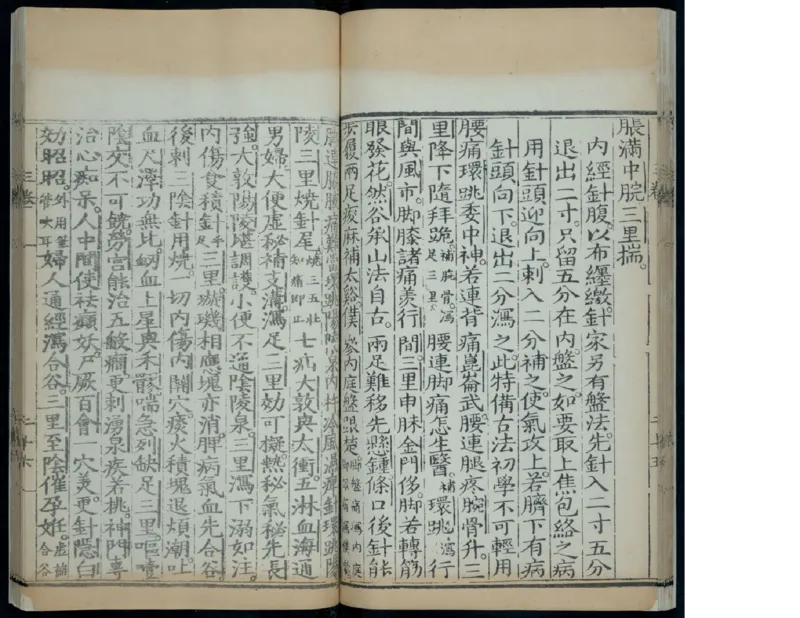 脹滿中脘三里揣。
內經針腹。以布纏繳。針家另有盤法。先針入二寸五分
退出二寸。只留五分在內。盤之。如要取上焦包絡之病
用針頭迎向上。刺入二分補之。使氣攻上。若臍下有病
針頭向下。退出二分瀉之。此特備古法。初學不可輕用
腰痛環跳委中神。若連背痛崑崙武。腰連腿疼腕骨升。三
里降下隨拜跪。補腕骨瀉足三里。腰連脚痛怎生醫。補環跳瀉行
間與風市。脚膝諸痛羨行間。三里申脉金門侈。脚若轉筋
眼發花。然谷承山法自古。兩足難移先懸鍾。條口後針能
步履。兩足痠麻補太谿。僕參內庭盤跟楚。脚盤痛瀉內庭
脇腋痛難當環跳陽陵泉內杵冷風濕痺針環跳陽
陵三里燒針尾。燒三五壯知痛即止七疝大敦與太衝。五淋血海通
男婦。大便虛秘補支溝。瀉足三里効可擬。熱秘氣秘先長
強。大敦陽陵堪調護。小便不通陰陵泉。三里瀉下溺如注。
內傷食積針手足三里。璇璣相應塊亦消。脾病氣血先合谷。
後刺三陰針用燒。一切內傷內關穴。痰火積塊退煩潮。吐
血尺澤功無比。衂血上星與禾髎。喘急列缺足三里。嘔噎
陰交不可饒。勞宮能治五般癇。更刺湧泉疾若挑。神門專
治心痴呆。人中間使祛癲妖。尸厥百會一穴美。更針隱白
効昭昭。外用筆管吹耳婦人通經瀉合谷。三里至陰催孕妊。虛補合谷